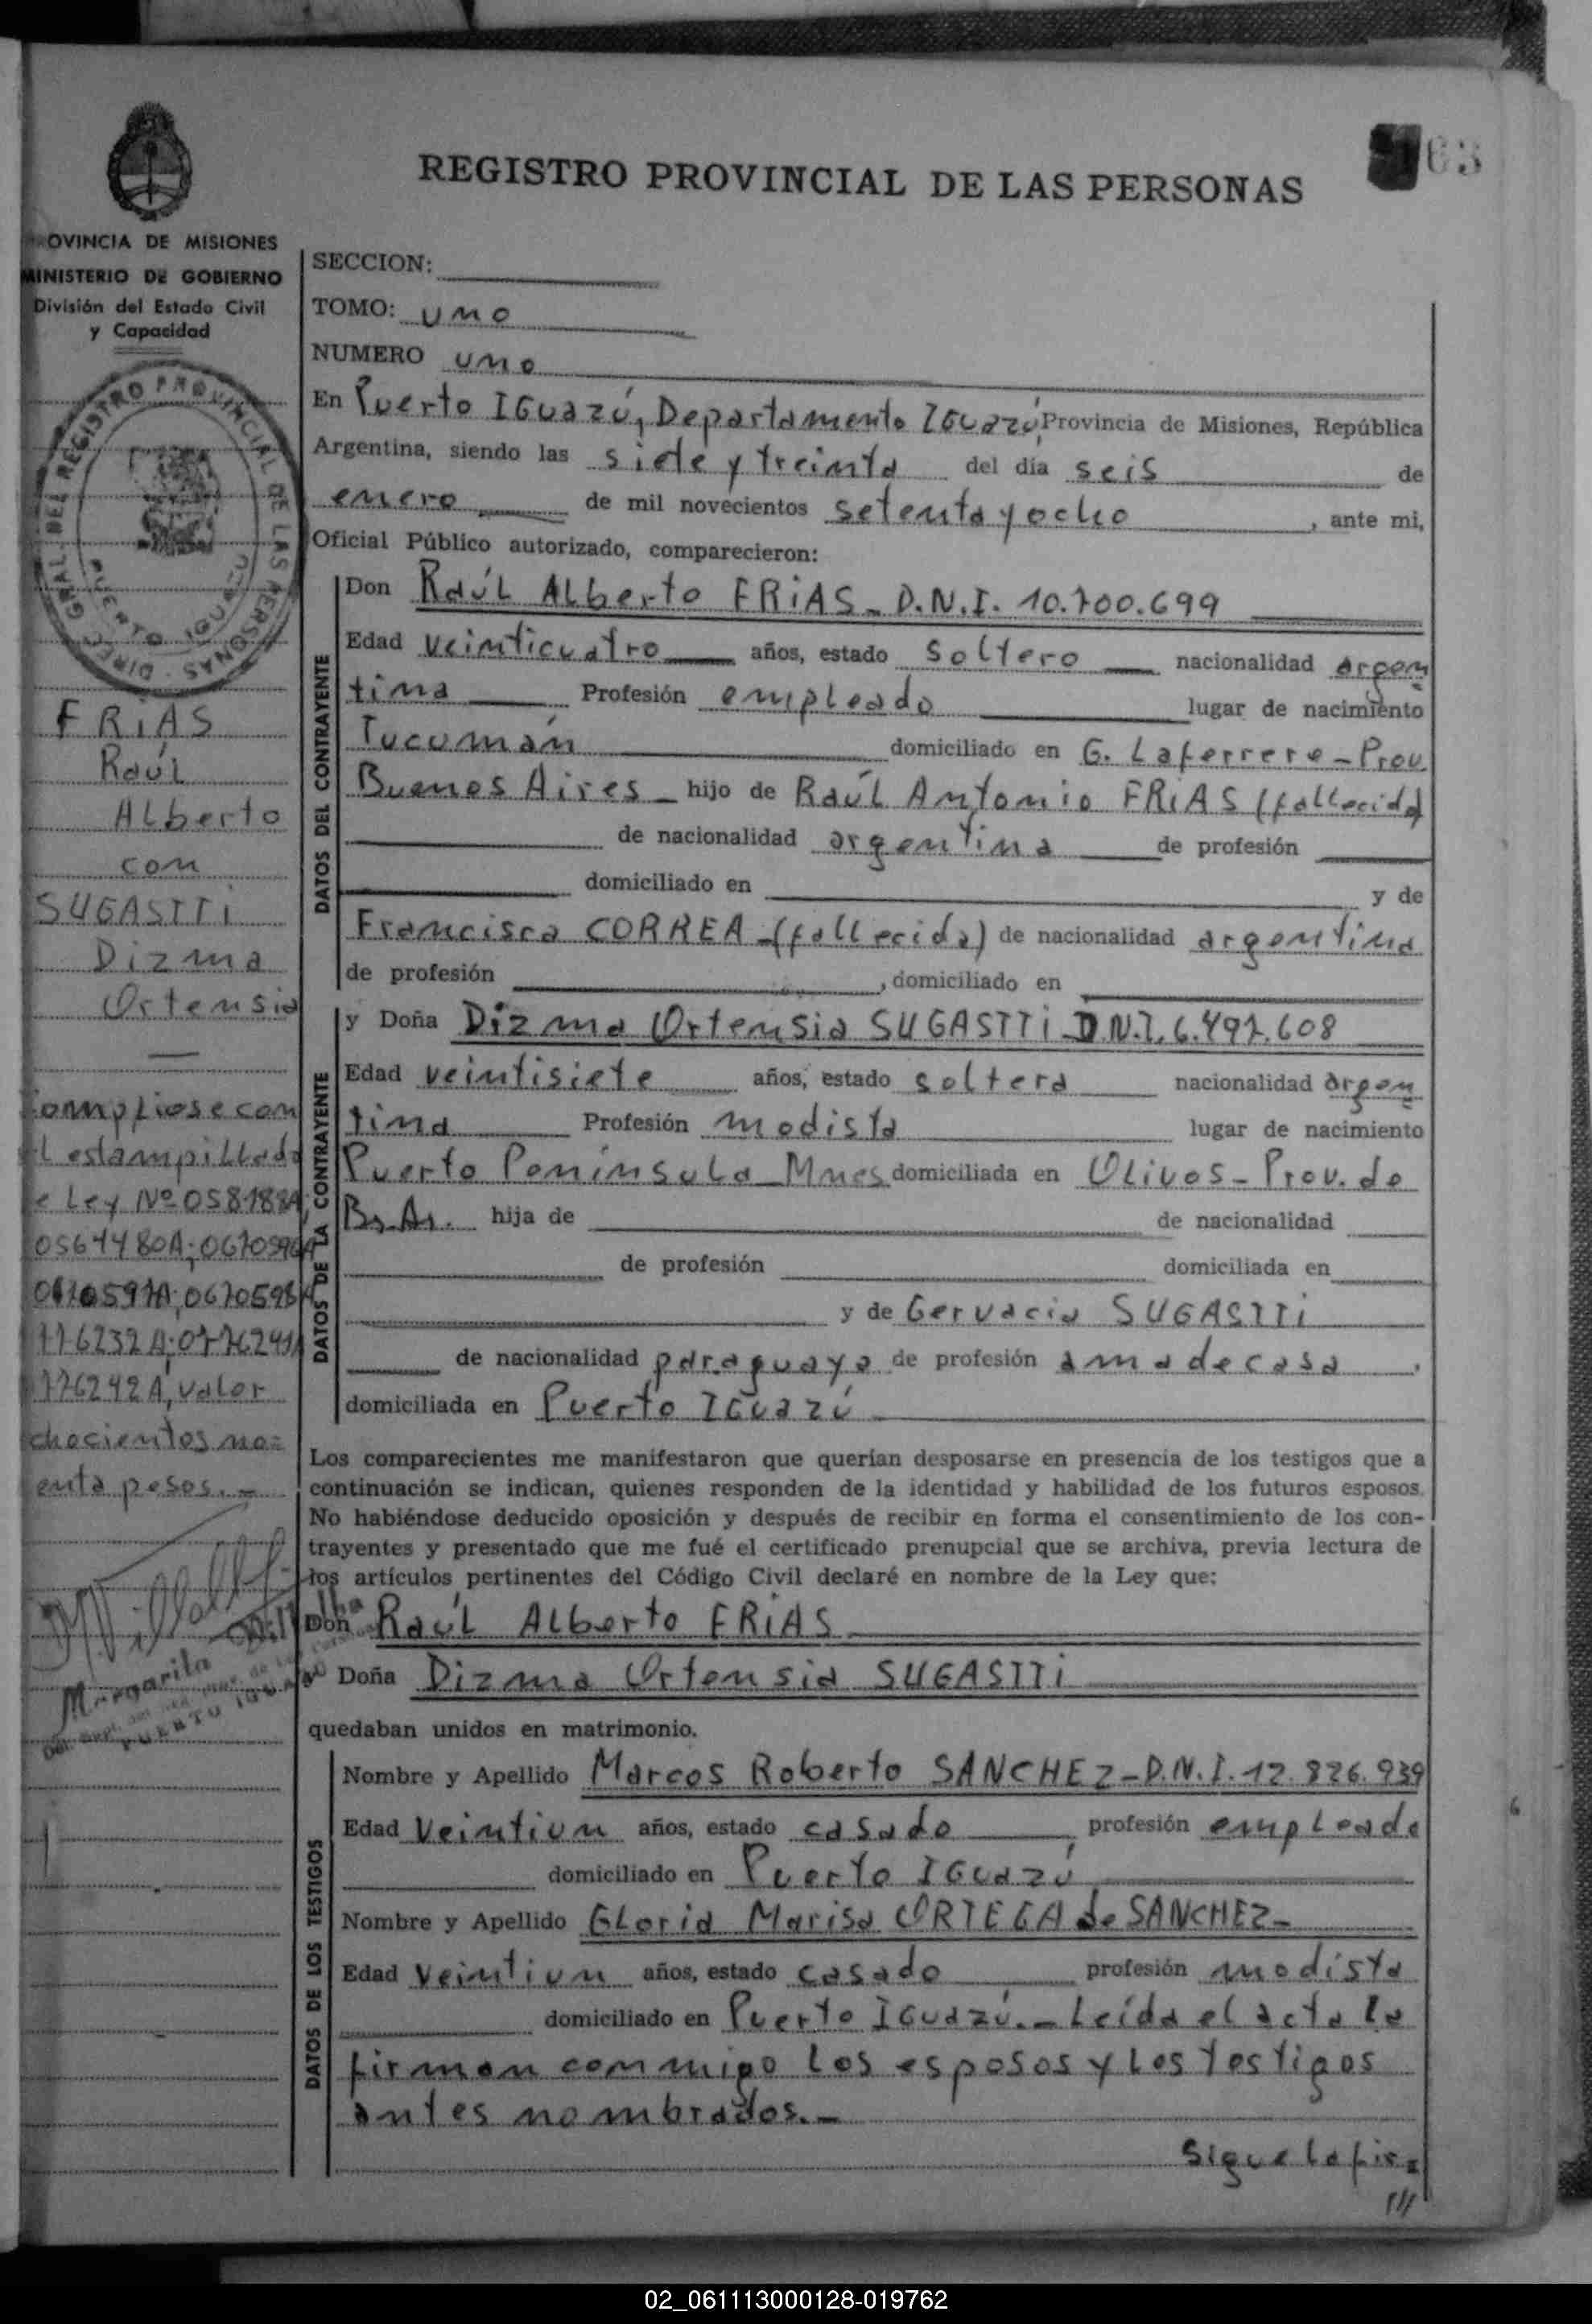 63
REGISTRO PROVINCIAL DE LAS PERSONAS
PROVINCIA DE MISIONES
MINISTERIO DE GOBIERNO
División del Estado Civil
y Capacidad
DIRECC GRAL. DEL REGISTRO PROVINCIAL DE LAS PERSONAS
PUERTO IGUAZU
FRiAS
Raúl
ALberto
con
SUGASTTi
Dizma
Ortensia
Compliose con
el estampillado
de Ley Nº 058188A
0564480A; 0670596A
0670597A; 0670598A
776232A; 0776241A
776242A, valor
ochocientos no=
enta pesos.-
Margarita Villalba
PUERTO IGUAZU
SECCION:
TOMO: uno
NUMERO uno
En Puerto IGuazú, Departamento IGuazú, Provincia de Misiones, República
Argentina, siendo las siete y treinta del día seis de
enero de mil novecientos setenta y ocho, ante mi,
Oficial Público autorizado, comparecieron:
DATOS DEL CONTRAYENTE
Don Raúl ALberto FRiAS - D.N.I. 10.700.699
Edad veinticuatro años, estado soltero nacionalidad argen
tina Profesión empleado lugar de nacimiento
Tucumán domiciliado en G. Laferrere - Prov.
Buenos Aires - hijo de Raúl Antonio FRiAS (fallecido)
de nacionalidad argentina de profesión
domiciliado en y de
Francisca CORREA - (fallecida) de nacionalidad argentina
de profesión , domiciliado en
DATOS DE LA CONTRAYENTE
y Doña Dizma Ortensia SUGASTTi D.N.I. 6.497.608
Edad veintisiete años, estado soltera nacionalidad argen
tina Profesión modista lugar de nacimiento
Puerto Península - Mnes domiciliada en Olivos - Prov. de
Bs. As. hija de de nacionalidad
de profesión domiciliada en
y de Gervacia SUGASTTi
de nacionalidad paraguaya de profesión ama de casa ,
domiciliada en Puerto IGuazú
Los comparecientes me manifestaron que querían desposarse en presencia de los testigos que a
continuación se indican, quienes responden de la identidad y habilidad de los futuros esposos.
No habiéndose deducido oposición y después de recibir en forma el consentimiento de los con-
trayentes y presentado que me fué el certificado prenupcial que se archiva, previa lectura de
los artículos pertinentes del Código Civil declaré en nombre de la Ley que:
Don Raúl ALberto FRiAS
Doña Dizma Ortensia SUGASTTi
quedaban unidos en matrimonio.
DATOS DE LOS TESTIGOS
Nombre y Apellido Marcos Roberto SANCHEZ - D.N.I. 12.826.939
Edad veintiun años, estado casado profesión empleado
domiciliado en Puerto IGuazú
Nombre y Apellido GLoria Marisa ORTEGA de SANCHEZ -
Edad veintiun años, estado casado profesión modista
domiciliado en Puerto IGuazú. - Leída el acta la
firman conmigo los esposos y los testigos
antes nombrados. -
Sigue la fir=
///
6
02_061113000128-019762